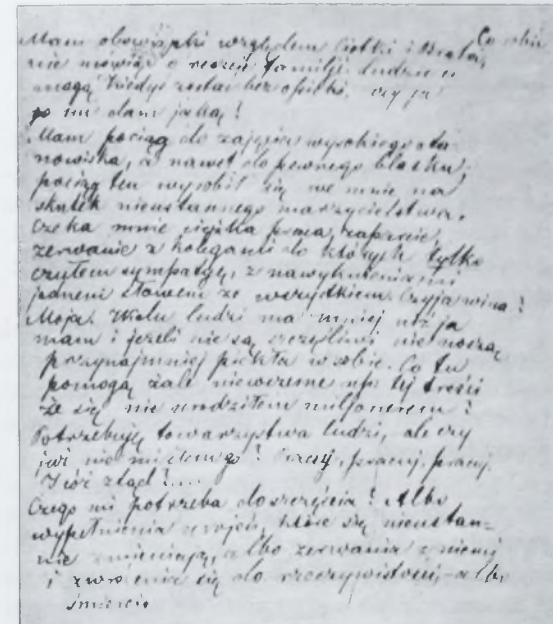 Mam obowiązki względem Ciotki i Brata, Co robić
nie mówiąc o reszcie familji. Ludzie ci
mogą kiedyś zostać bez opieki. czy ja
im dam jaką?
Mam pociąg do zajęcia wysokiego sta-
nowiska, a nawet do pewnego blasku,
pociąg ten wyrobił się we mnie na
skutek nieustannego marzycielstwa.
Czeka mnie ciężka praca, zaparcie,
zerwanie z kolegami do których tylko
czułem sympatyę, z nawyknieniami
jednem słowem ze wszystkiem. Czyja wina?
Moja. Wielu ludzi ma mniej niż ja
mam i jeżeli nie są szczęśliwi nie noszą
przynajmniej piekła w sobie. Co tu
pomogą żale niewczesne np. tej treści
że się nie urodziłem miljonerem?
Potrzebuję towarzystwa ludzi, ale czy
już nie mam go? Pracuj, pracuj, pracuj.
Idź ztąd!....
Czego mi potrzeba do szczęścia? Albo
wypełnienia urojeń, które się nieustan-
nie zmieniają, albo zerwania z niemi
i zwrócenia się do rzeczywistości,-albo
śmierci